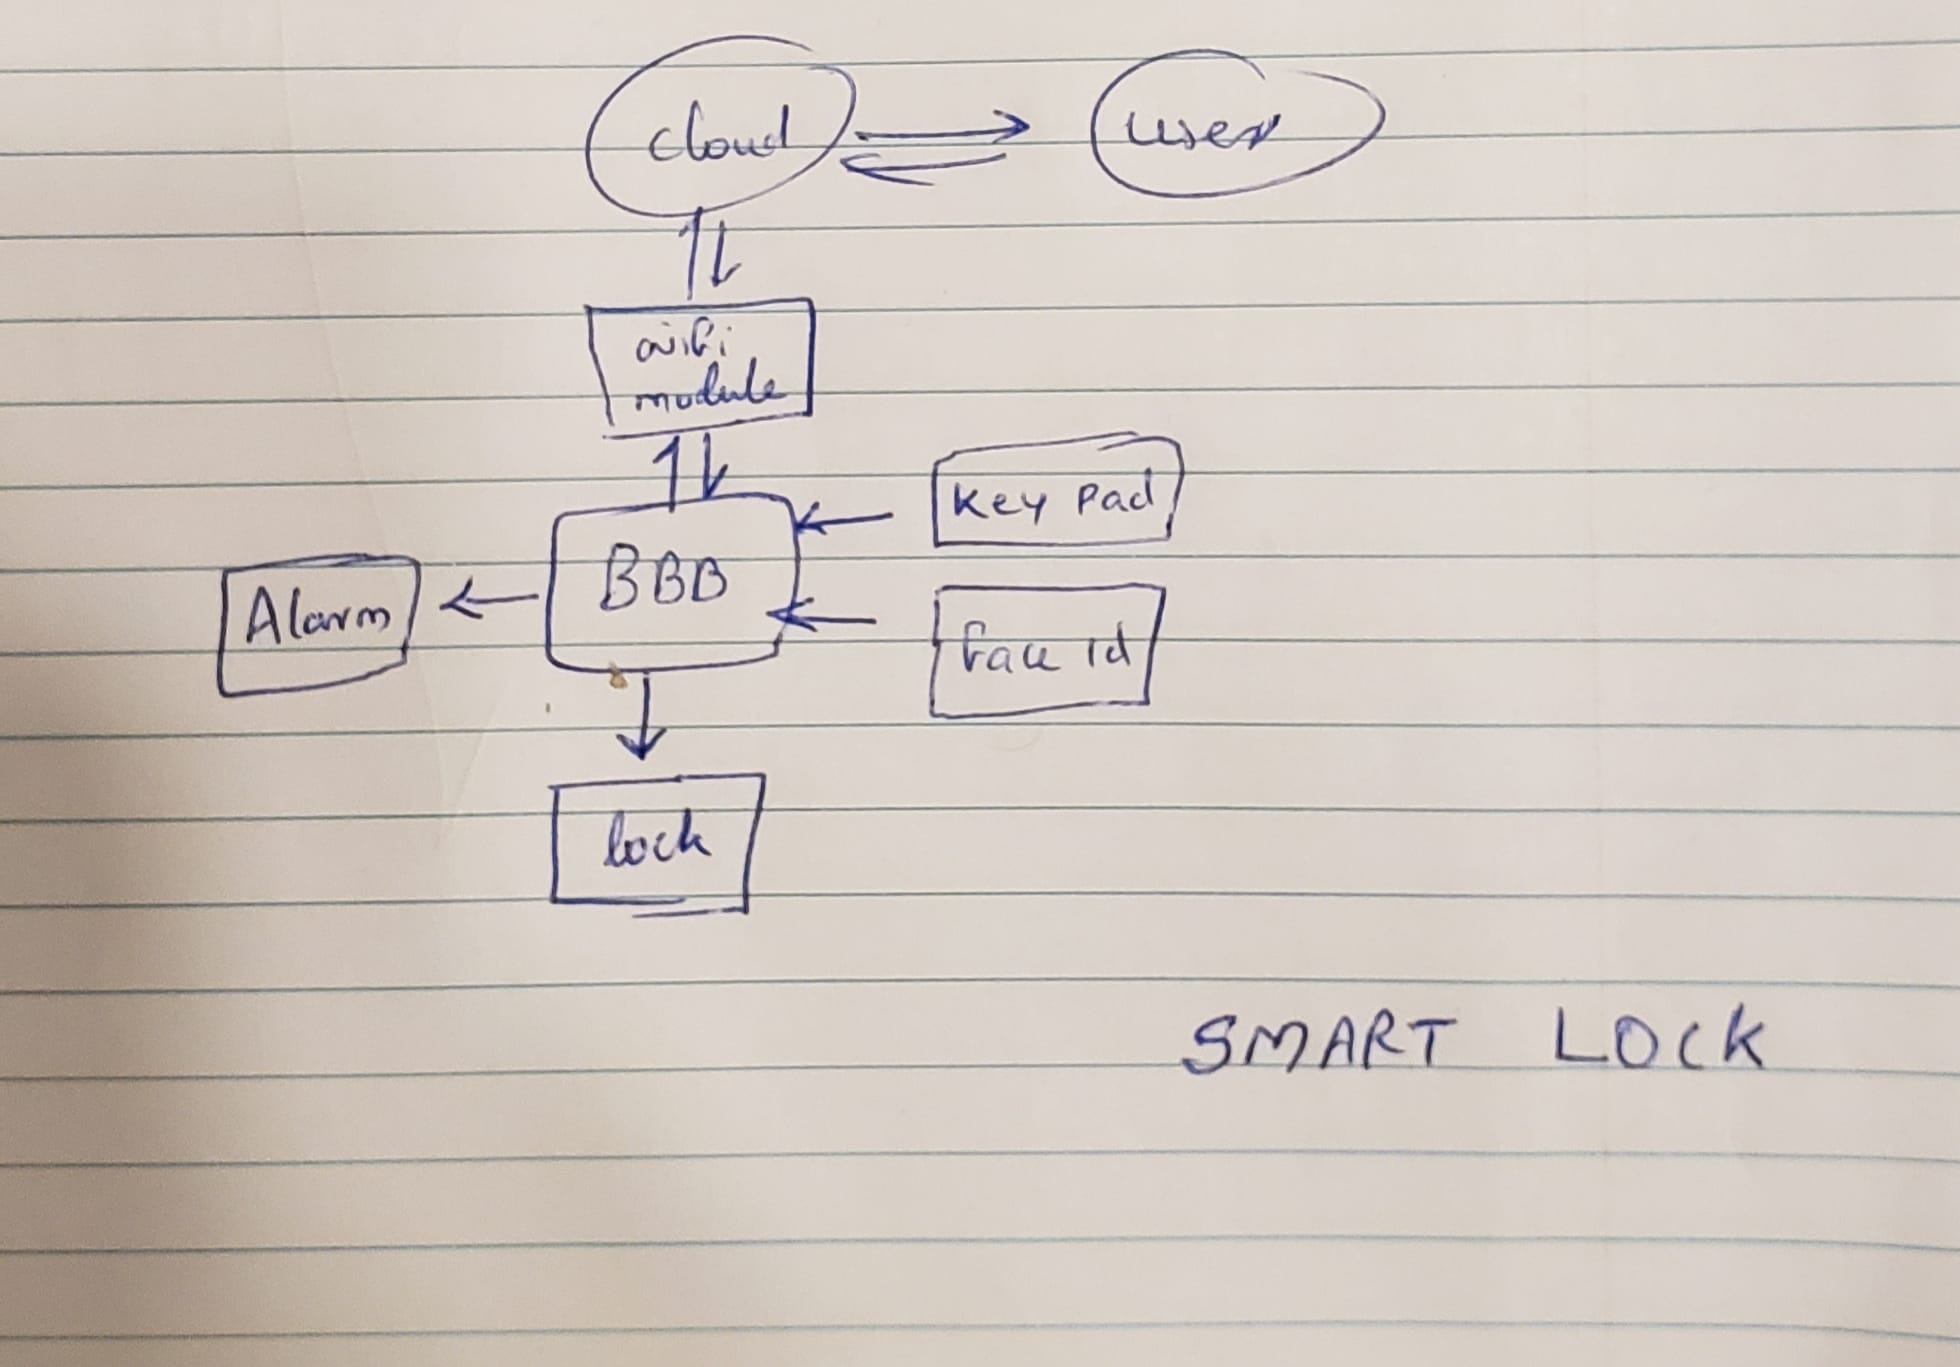 cloud
user
wifi
module
Key Pad
BBB
Alarm
face id
lock
SMART LOCK